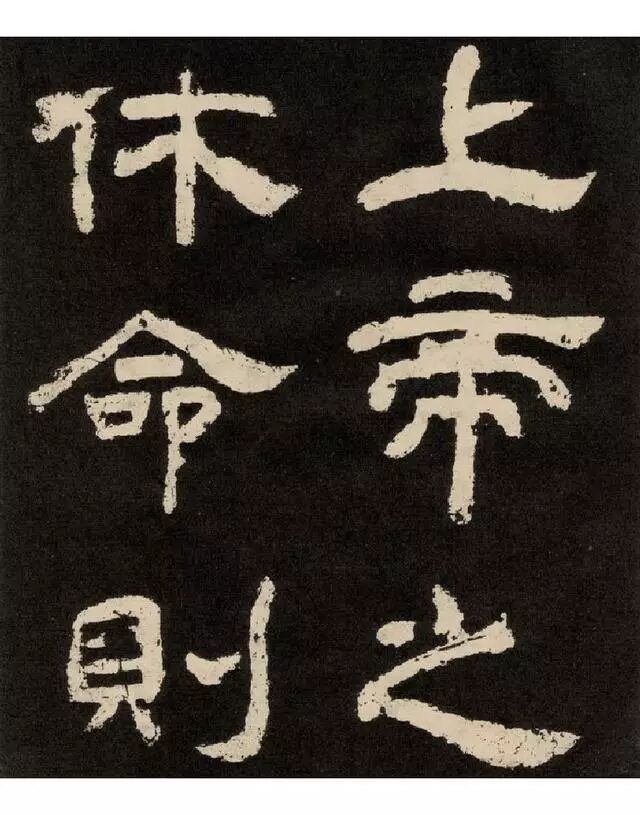 上帝之
休命則